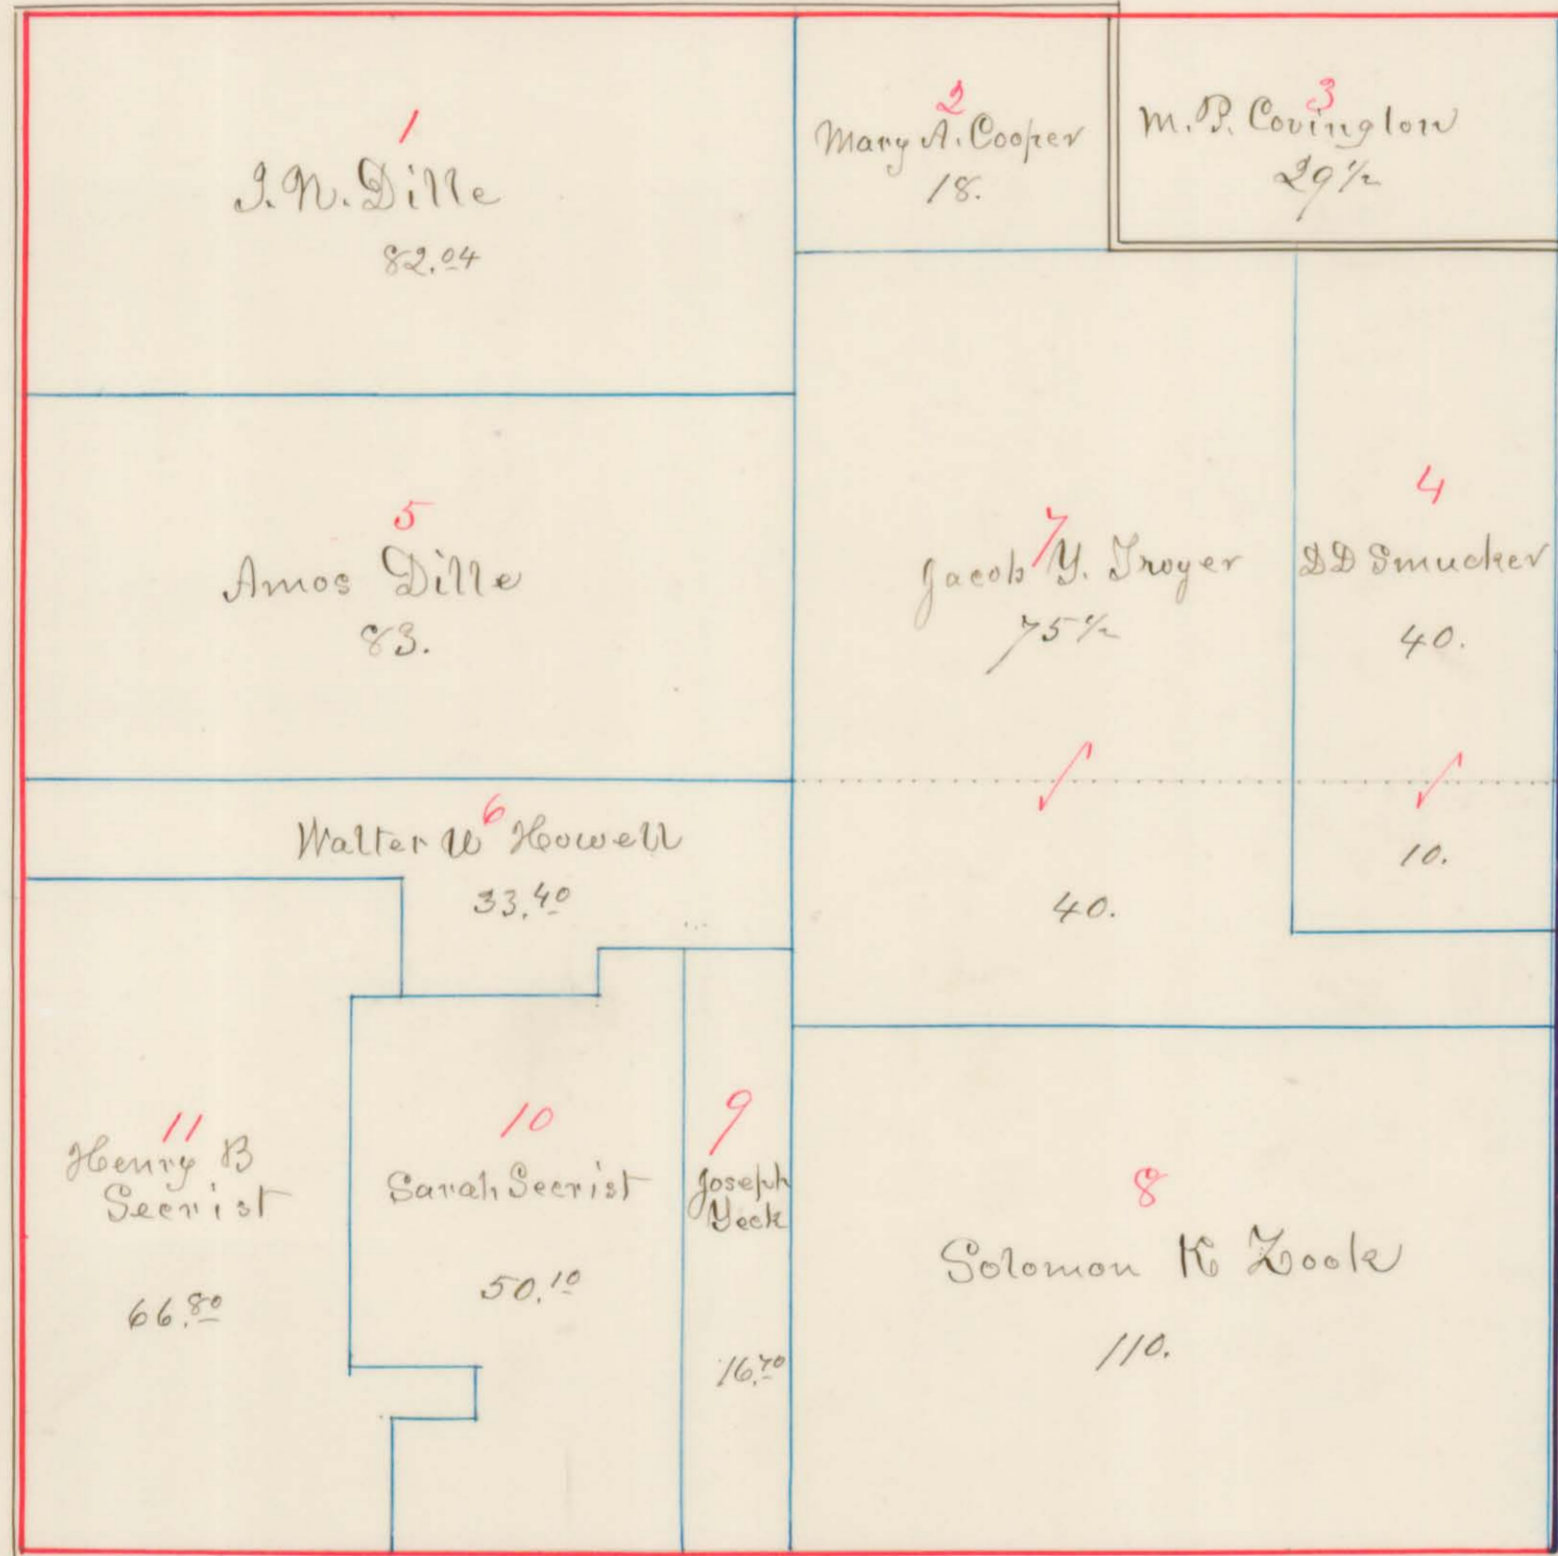 1
I. N. Dille
82.04
2
Mary A. Cooper
18.
3
M. P. Covington
29 1/2
5
Amos Dille
83.
7
Jacob Y. Troyer
75 1/2
40.
4
D D Smucker
40.
10.
6
Walter W Howell
33.40
11
Henry B
Secrist
66.80
10
Sarah Secrist
50.10
9
Joseph
Yeck
16.70
8
Solomon K Zook
110.